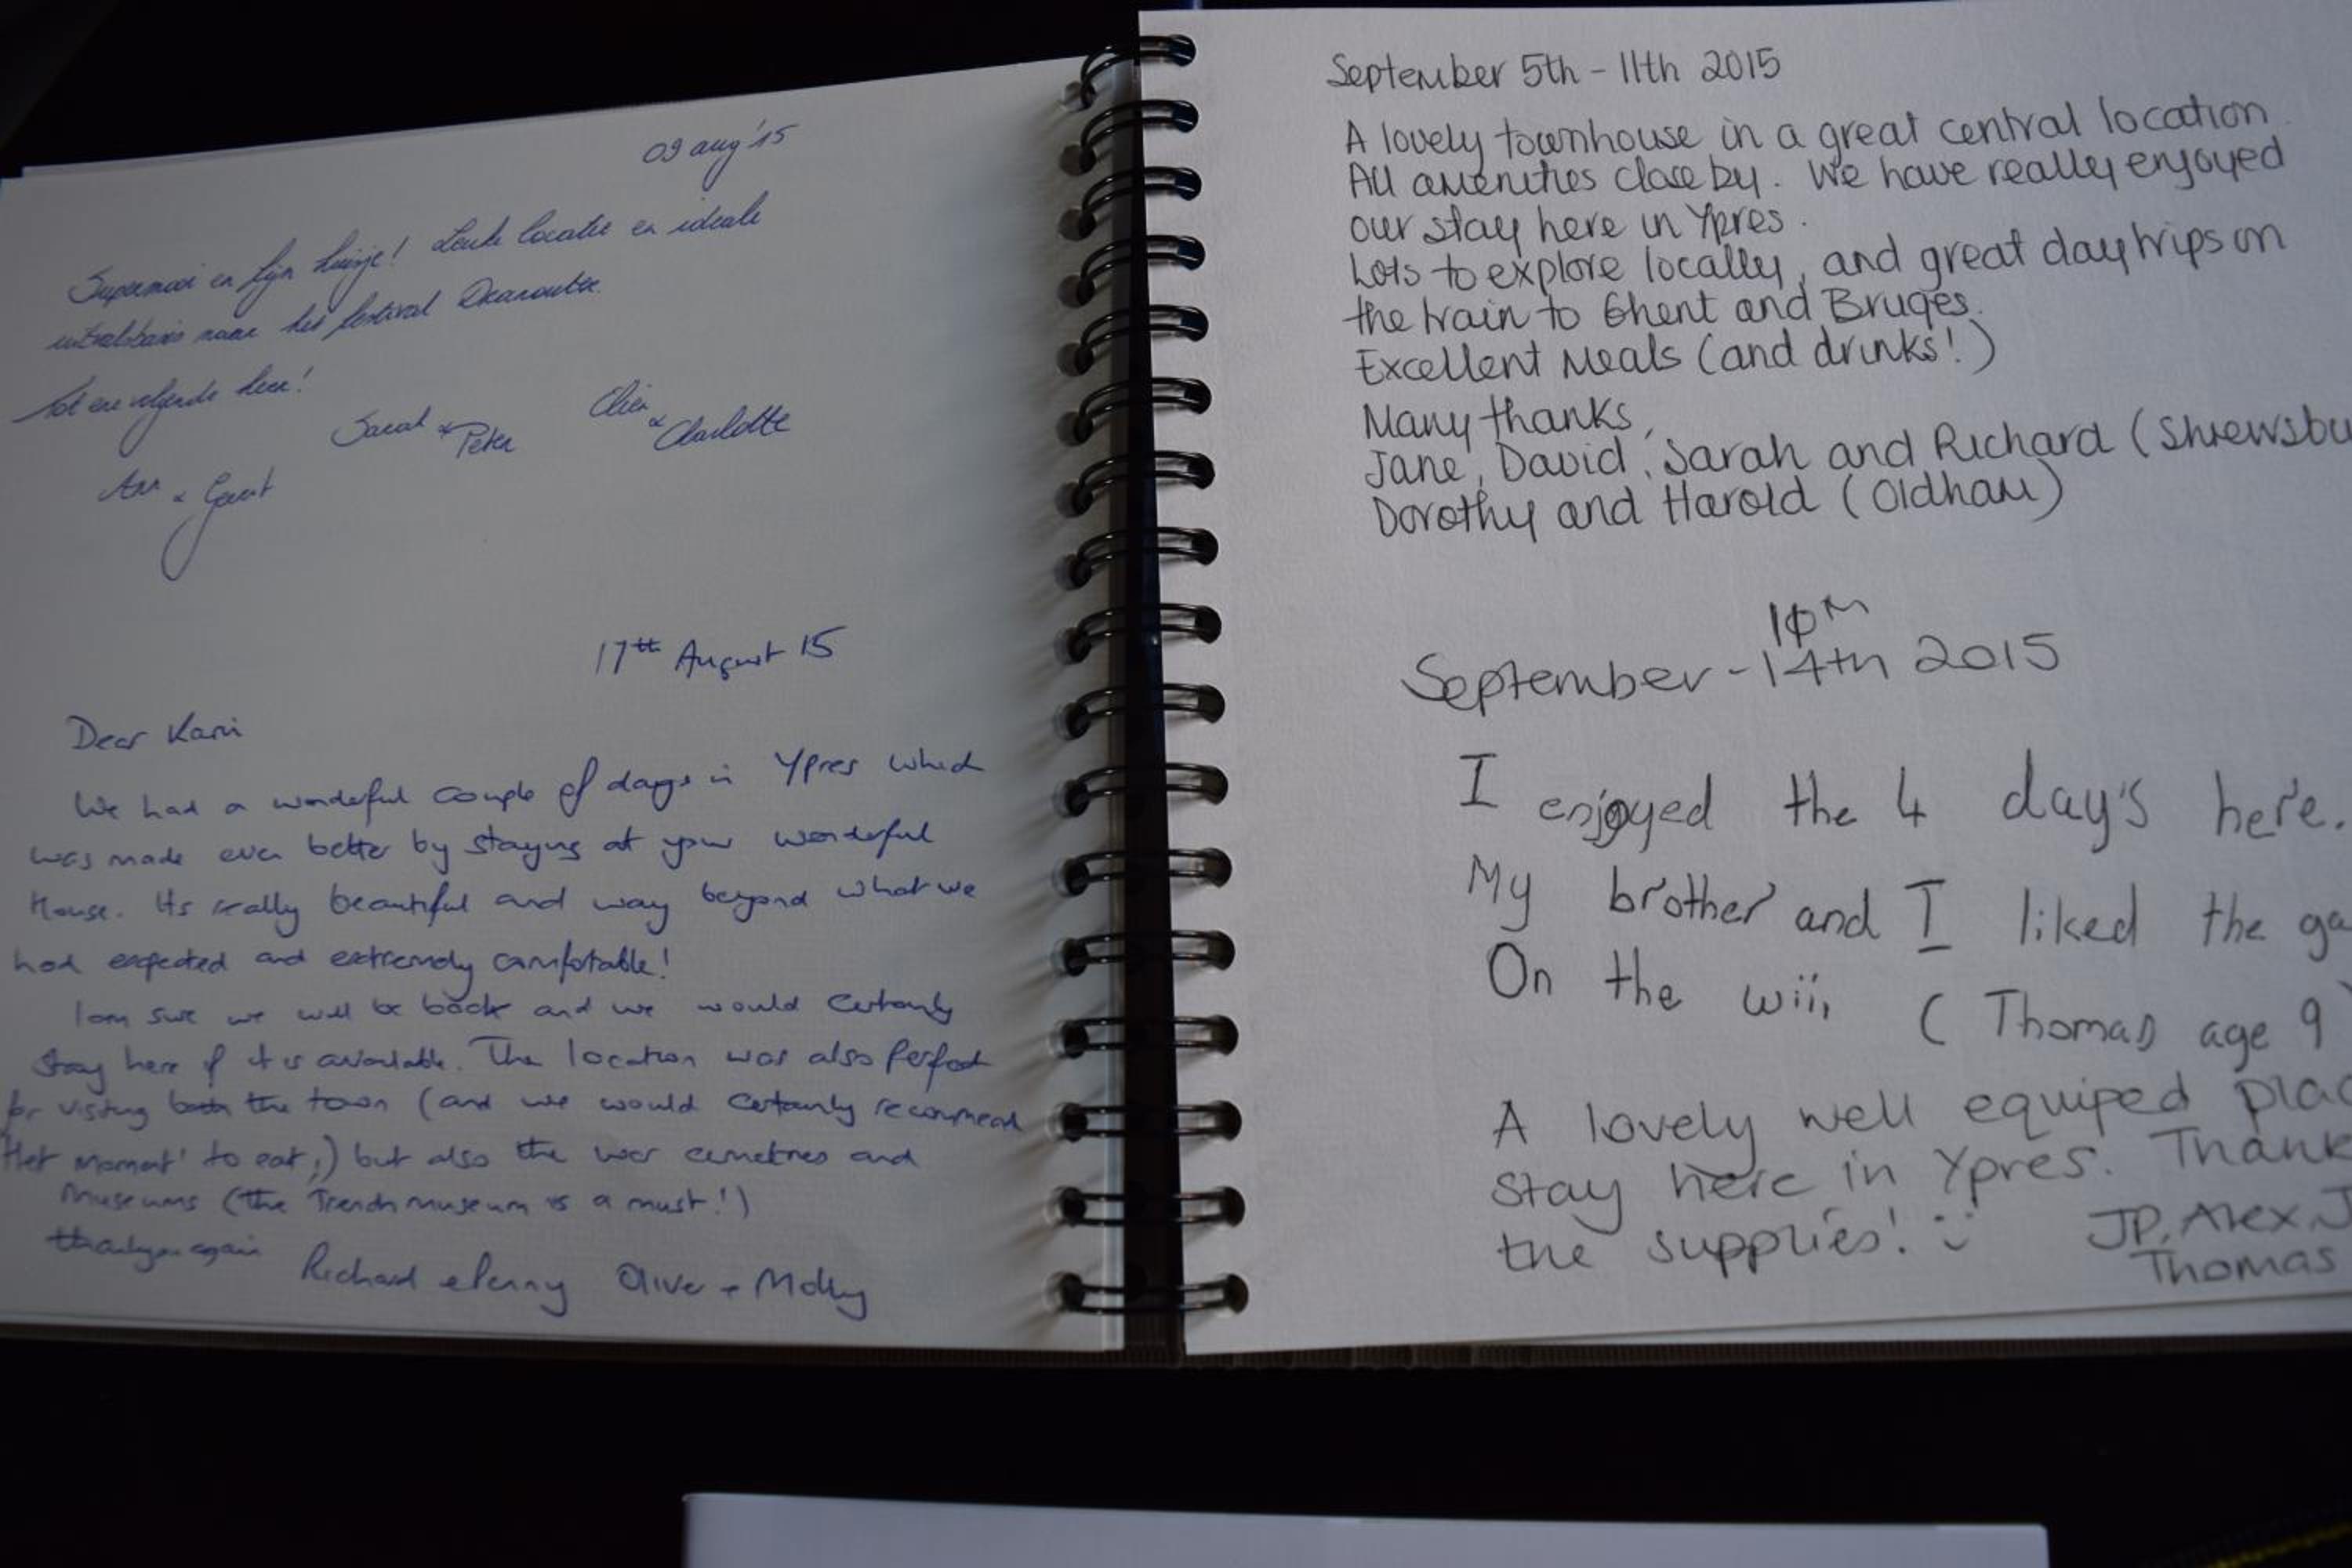 09 aug '15
Supermooi en fijn huisje! Leuke locatie en ideale
uitvalsbasis naar het festival Dranouter.
Tot een volgende keer!
Sarah & Peter
&
Charlotte
Ann &
17th August 15
Dear Karin
We had a wonderful couple of days in Ypres which
was made even better by staying at your wonderful
House. Its really beautiful and way beyond what we
had expected and extremely comfortable!
I am sure we will be back and we would certainly
stay here if it is available. The location was also perfect
for visiting the town (and we would certainly recommend
'Het Moment' to eat;) but also the war cemetries and
museums (the Trench museum is a must!)
thankyou again
Richard & Penny Olive + Molly
September 5th - 11th 2015
A lovely townhouse in a great central location.
All amenities close by. We have really enjoyed
our stay here in Ypres.
Lots to explore locally, and great day trips on
the train to Ghent and Bruges.
Excellent Meals (and drinks!)
Many thanks,
Jane, David, Sarah and Richard (Shrewsbu
Dorothy and Harold (Oldham)
September - 14th 2015
I enjoyed the 4 day's here.
My brother and I liked the ga
On the wii, (Thomas age 9)
A lovely well equiped plac
stay here in Ypres. Thank
the supplies! :-)
JP, Alex, J
Thomas